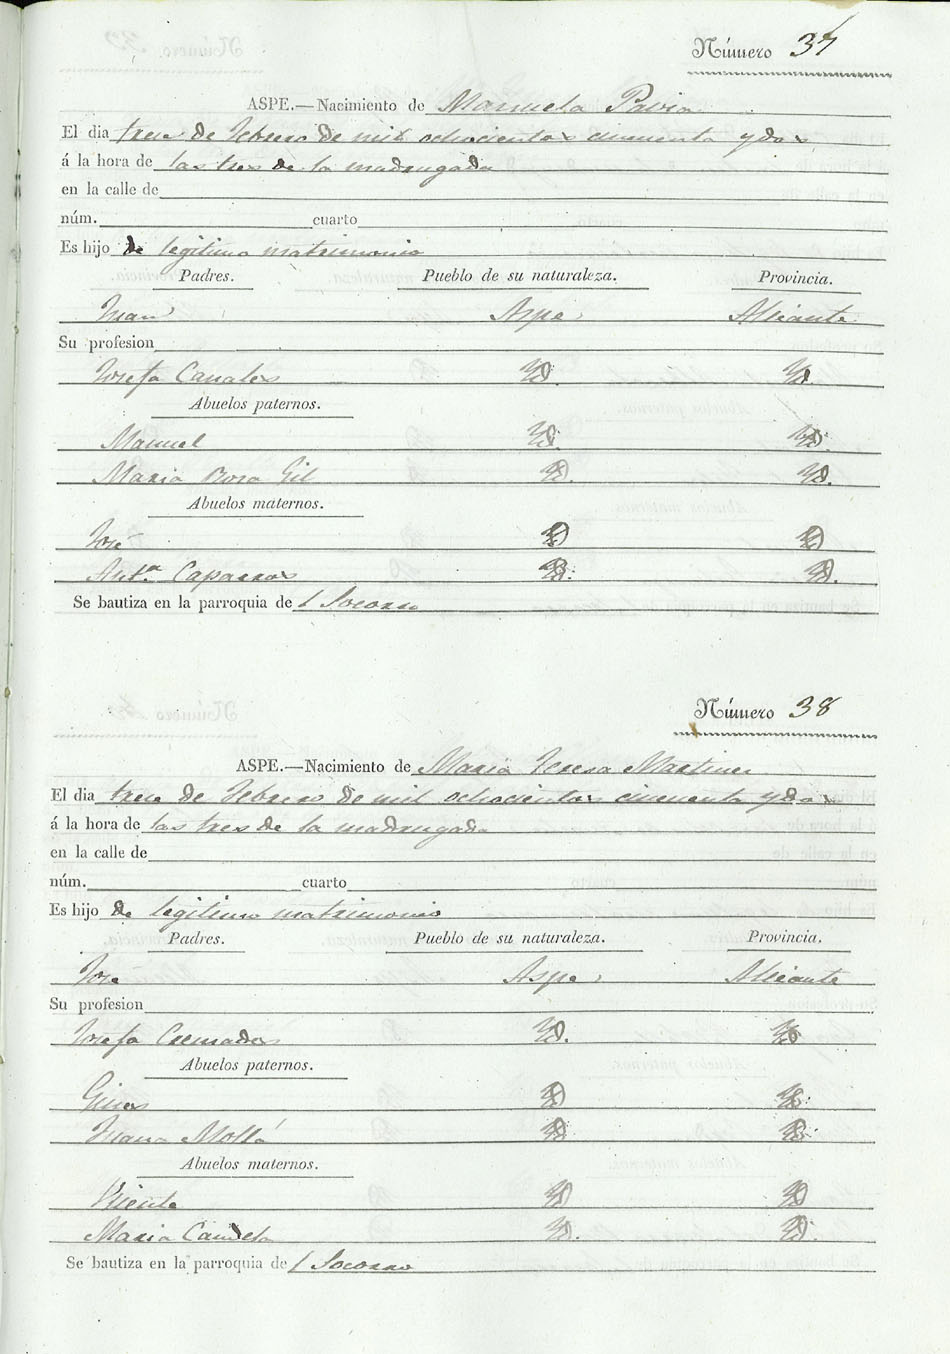 Número 37
ASPE.—Nacimiento de Manuela Pavia
El dia trece de Febrero de mil ochocientos cincuenta y dos
á la hora de las tres de la madrugada
en la calle de
núm. cuarto
Es hijo de legitimo matrimonio
Padres. Pueblo de su naturaleza. Provincia.
Juan Aspe Alicante
Su profesion
Josefa Canales Yd. Yd.
Abuelos paternos.
Manuel Yd. Yd.
Maria Rosa Gil Yd. Yd.
Abuelos maternos.
José Yd. Yd.
Ant.ª Caparros Yd. Yd.
Se bautiza en la parroquia de l Socorro
Número 38
ASPE.—Nacimiento de Maria Teresa Martinez
El dia trece de Febrero de mil ochocientos cincuenta y dos
á la hora de las tres de la madrugada
en la calle de
núm. cuarto
Es hijo de legitimo matrimonio
Padres. Pueblo de su naturaleza. Provincia.
Jose Aspe Alicante
Su profesion
Josefa Cremades Yd. Yd.
Abuelos paternos.
Gines Yd. Yd.
Juana Mollá Yd. Yd.
Abuelos maternos.
Vicente Yd. Yd.
Maria Candela Yd. Yd.
Se bautiza en la parroquia de l Socorro